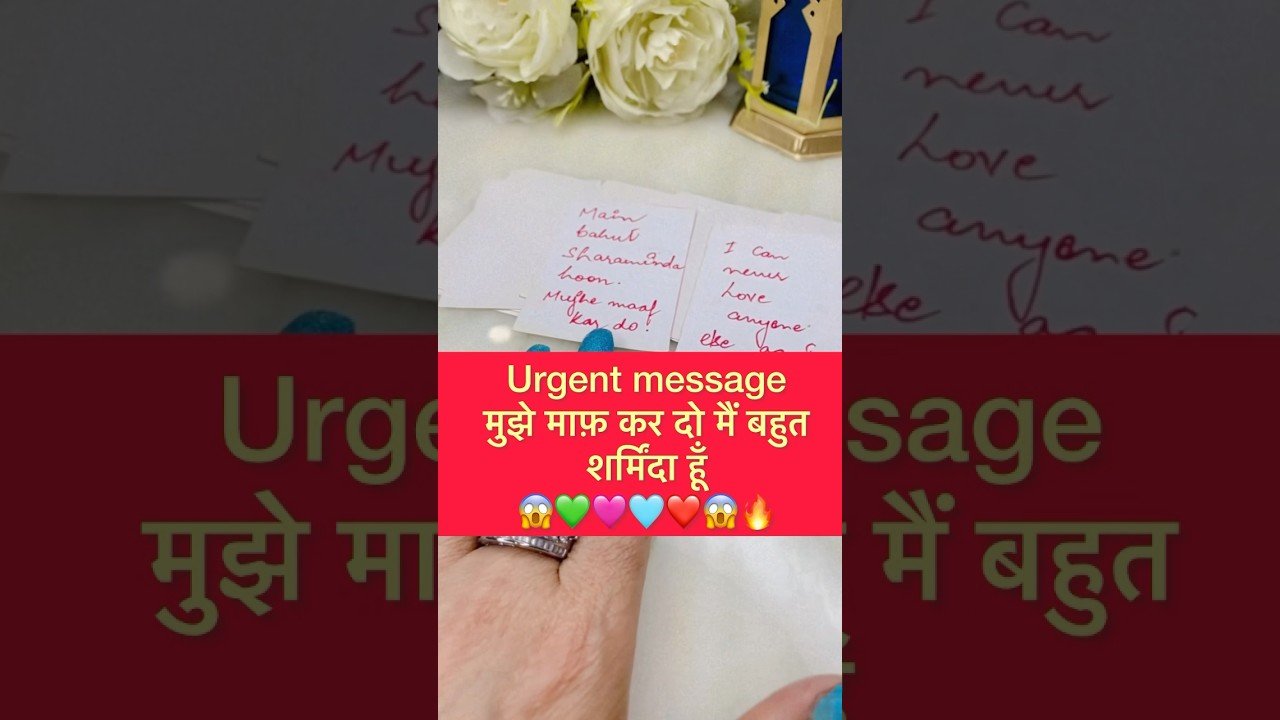 Main
bahut
Sharaminda
hoon.
Mujhe maaf
kar do!
I can
never
Love
anyone.
else
Urgent message
मुझे माफ़ कर दो मैं बहुत
शर्मिंदा हूँ
😱💚🩷🩵❤️😱🔥